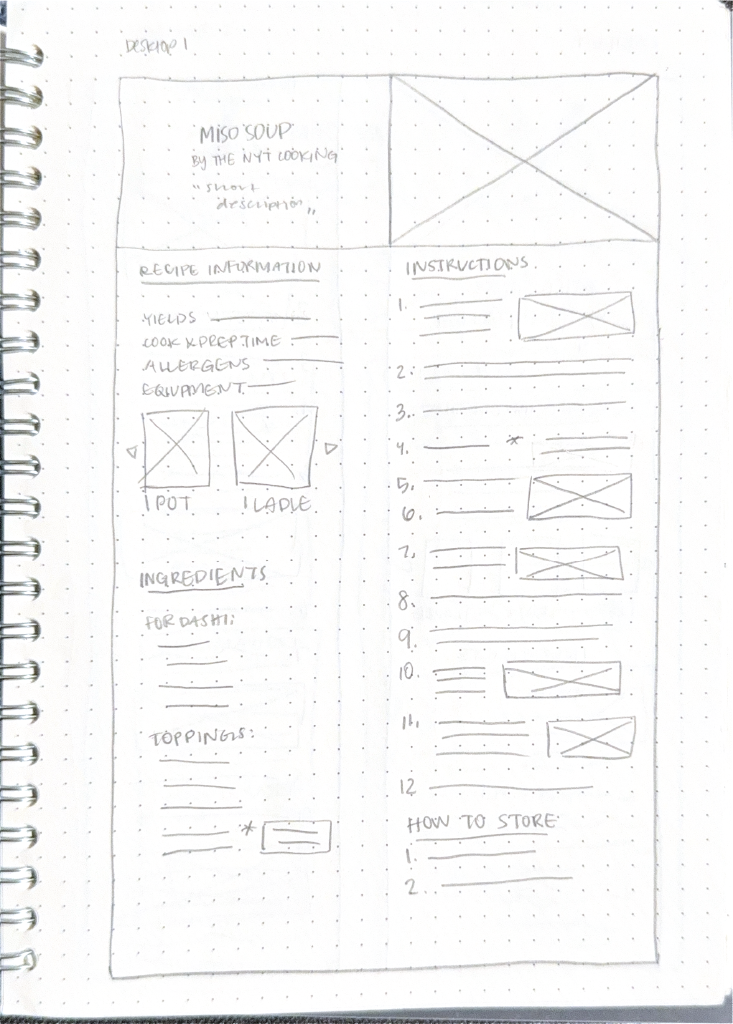 DESKTOP 1
MISO SOUP
BY THE NYT COOKING
"short
description"
RECIPE INFORMATION
YIELDS
COOK & PREP TIME
ALLERGENS
EQUIPMENT
1 POT
1 LADLE
INGREDIENTS
FOR DASHI:
TOPPINGS:
*
INSTRUCTIONS
1.
2.
3.
4. *
5.
6.
7.
8.
9.
10.
11.
12
HOW TO STORE
1.
2.